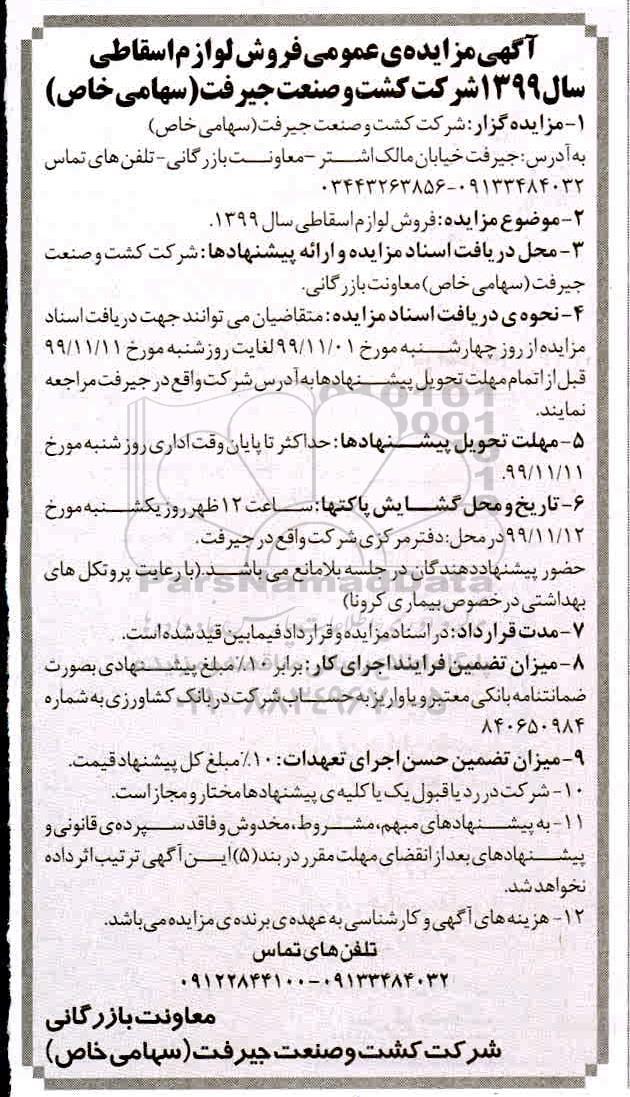 آگهی مزایده‌ی عمومی فروش لوازم اسقاطی
سال ۱۳۹۹ شرکت کشت و صنعت جیرفت (سهامی خاص)
۱- مزایده گزار: شرکت کشت و صنعت جیرفت (سهامی خاص)
به آدرس: جیرفت خیابان مالک اشتر – معاونت بازرگانی - تلفن های تماس
۰۳۴۴۳۲۶۳۸۵۶-۰۹۱۳۳۴۸۴۰۳۲
۲- موضوع مزایده: فروش لوازم اسقاطی سال ۱۳۹۹.
۳- محل دریافت اسناد مزایده و ارائه پیشنهادها: شرکت کشت و صنعت
جیرفت (سهامی خاص) معاونت بازرگانی.
۴- نحوه ی دریافت اسناد مزایده: متقاضیان می توانند جهت دریافت اسناد
مزایده از روز چهارشنبه مورخ ۹۹/۱۱/۰۱ لغایت روز شنبه مورخ ۹۹/۱۱/۱۱
قبل از اتمام مهلت تحویل پیشنهادها به آدرس شرکت واقع در جیرفت مراجعه
نمایند.
۵- مهلت تحویل پیشنهادها: حداکثر تا پایان وقت اداری روز شنبه مورخ
۹۹/۱۱/۱۱.
۶- تاریخ و محل گشایش پاکتها: ساعت ۱۲ ظهر روز یکشنبه مورخ
۹۹/۱۱/۱۲ در محل: دفتر مرکزی شرکت واقع در جیرفت.
حضور پیشنهاددهندگان در جلسه بلامانع می باشد. (با رعایت پروتکل های
بهداشتی در خصوص بیماری کرونا)
ParsNamadData
۷- مدت قرارداد: در اسناد مزایده و قرارداد فیمابین قید شده است.
۸- میزان تضمین فرایند اجرای کار: برابر ۱۰٪ مبلغ پیشنهادی بصورت
ضمانتنامه بانکی معتبر و یا واریز به حساب شرکت در بانک کشاورزی به شماره
۸۴۰۶۵۰۹۸۴
۹- میزان تضمین حسن اجرای تعهدات: ۱۰٪ مبلغ کل پیشنهاد قیمت.
۱۰- شرکت در رد یا قبول یک یا کلیه ی پیشنهادها مختار و مجاز است.
۱۱- به پیشنهادهای مبهم، مشروط، مخدوش و فاقد سپرده ی قانونی و
پیشنهادهای بعد از انقضای مهلت مقرر در بند (۵) این آگهی ترتیب اثر داده
نخواهد شد.
۱۲- هزینه های آگهی و کارشناسی به عهده ی برنده ی مزایده می باشد.
تلفن های تماس
۰۹۱۲۲۸۴۴۱۰۰-۰۹۱۳۳۴۸۴۰۳۲
معاونت بازرگانی
شرکت کشت و صنعت جیرفت (سهامی خاص)